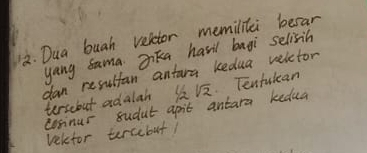 2. Dua buah vektor memiliki besar
yang sama. Jika hasil bagi selisih
dan resultan antara kedua vektor
tersebut adalah ½ √2. Tentukan
cosinus sudut apit antara kedua
vektor tercebut!